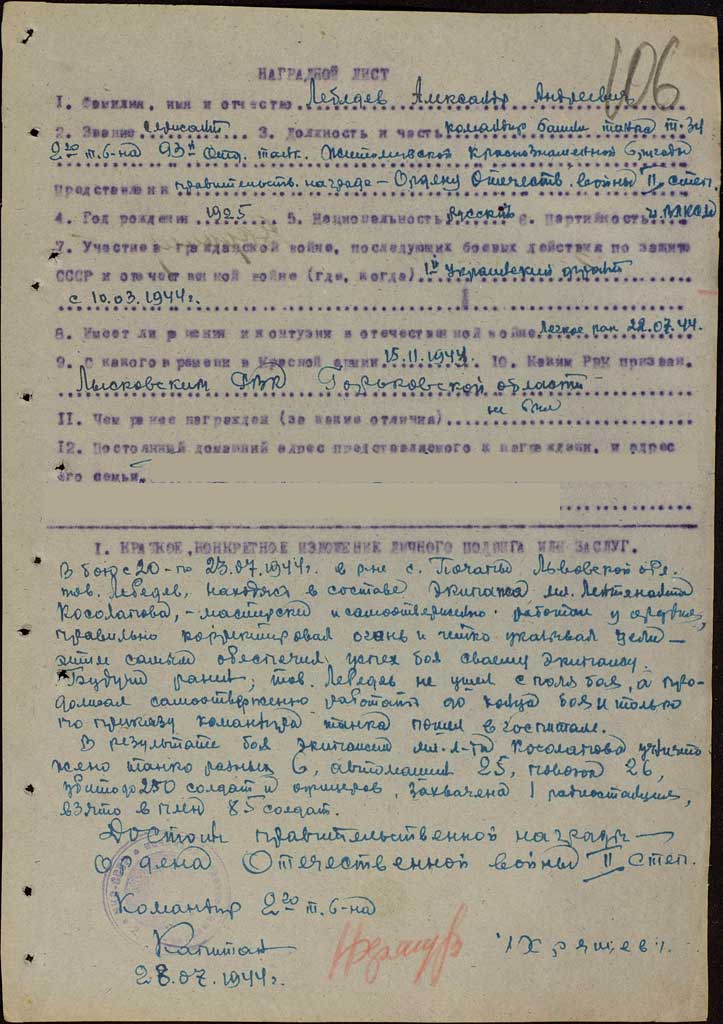 106
НАГРАДНОЙ ЛИСТ
1. Фамилия, имя и отчество Лебедев Александр Андреевич
2. Звание сержант 3. Должность и часть командир башни танка Т-34
2го т. б-на 93й Отд. танк. Житомирской Краснознаменной бригады
Представлен к правительств. награде – Ордену Отечеств. войны II степ.
4. Год рождения 1925 5. Национальность русский 6. Партийность чл. ВЛКСМ
7. Участие в гражданской войне, последующих боевых действия по защите
СССР и отечественной войне (где, когда) 1й Украинский фронт
с 10.03.1944г.
8. Имеет ли ранения и контузии в отечественной войне Легкое ран 22.07.44.
9. С какого времени в Красной армии 15.11.1942 10. Каким Рвк призван.
Лысковским РВК Горьковской области
11. Чем ранее награжден (за какие отличия) не был
12. Постоянный домашний адрес представляемого к награждени. и адрес
его семьи
I. КРАТКОЕ, КОНКРЕТНОЕ ИЗЛОЖЕНИЕ ЛИЧНОГО ПОДВИГА ИЛИ ЗАСЛУГ.
В бою с 20 – по 23.07.1944г. в р-не с. Почапы Львовской обл.
тов. Лебедев, находясь в составе экипажа мл. Лейтенанта
Косолапова, – мастерски и самоотверженно работал у орудия,
правильно корректировал огонь и четко указывал цели –
этим самым обеспечил успех боя своему экипажу.
Будучи ранен, тов. Лебедев не ушел с поля боя, а про-
должал самоотверженно работать до конца боя и только
по приказу командира танка пошел в госпиталь.
В результате боя экипажем мл. л-та Косолапова уничто
жено танков разных 6, автомашин 25, повозок 26,
убито до 250 солдат и офицеров, захвачена 1 радиостанция,
взято в плен 85 солдат.
Достоин правительственной награды –
ордена Отечественной войны II степ.
Командир 2го т. б-на
Капитан /Хрящев/.
28.07.1944г.